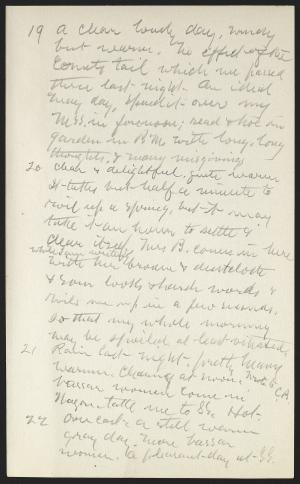 19 A clear lovely day, windy
but warmer. No effect of the
Comets tail which we passed
thru last night. An ideal
May day, puddled over my
Mss. in forenoon; read & hoe in
garden in P.M. with long, long
thoughts, & many misgivings
20 clear & delightful, quite warm
It takes but half a minute to
roil up a spring, but it may
take it an hour to settle &
clear itself. Mrs B. comes in here
while I am writing
with her broom & dustcloth
& sour looks & harsh words &
roils me up in a few seconds,
so that my whole morning
may be spoiled at least vitiated
21 Rain last night, pretty heavy
warm. Clearing at noon,
Vassar women come in
Wagon, take me to SS. Hot.
22 Overcast & still warm
gray day. More Vassar
women. A pleasant day at SS.